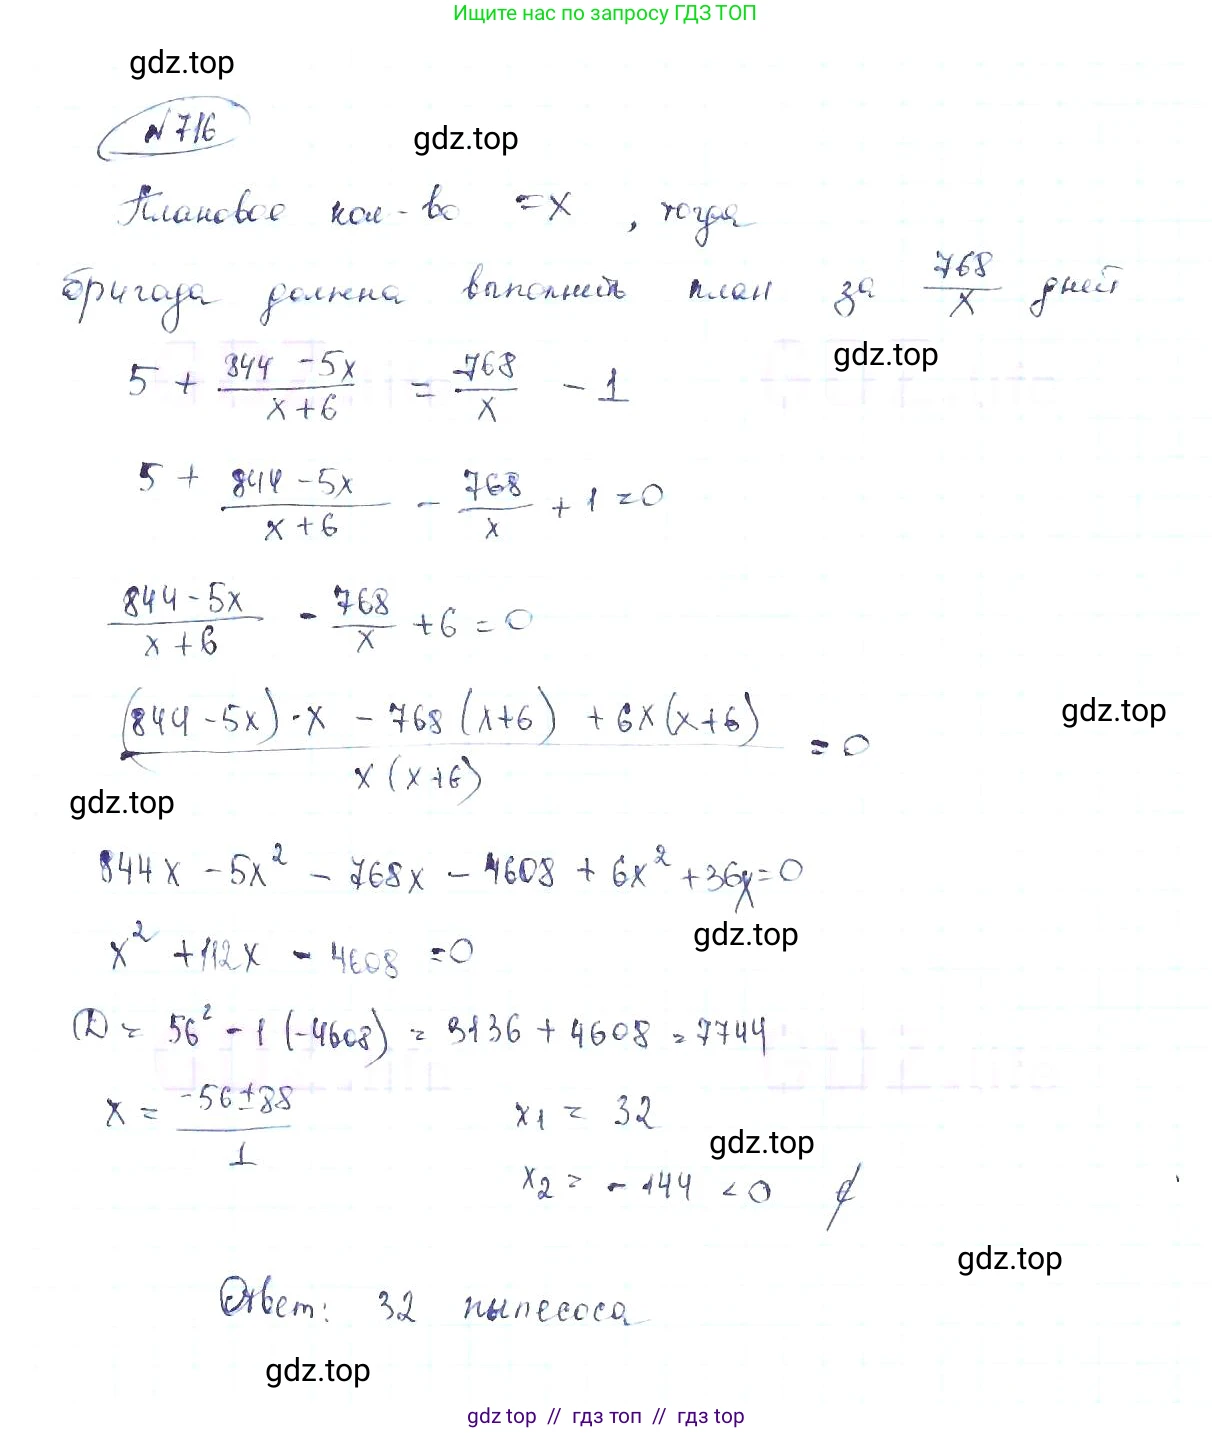 Ищите нас по запросу ГДЗ ТОП
gdz.top
№716
gdz.top
Плановое кол-во = x, тогда
бригада должна выполнить план за 768/x дней
gdz.top
5 + (844 - 5x)/(x+6) = 768/x - 1
5 + (844 - 5x)/(x+6) - 768/x + 1 = 0
(844 - 5x)/(x+6) - 768/x + 6 = 0
gdz.top
((844 - 5x)·x - 768(x+6) + 6x(x+6))/(x(x+6)) = 0
gdz.top
844x - 5x² - 768x - 4608 + 6x² + 36x = 0
gdz.top
x² + 112x - 4608 = 0
D = 56² - 1(-4608) = 3136 + 4608 = 7744
x = (-56 ± 88)/1 x₁ = 32
gdz.top
x₂ = -144 < 0 ∉
gdz.top
Ответ: 32 пылесоса
gdz.top
gdz top // гдз топ // гдз top